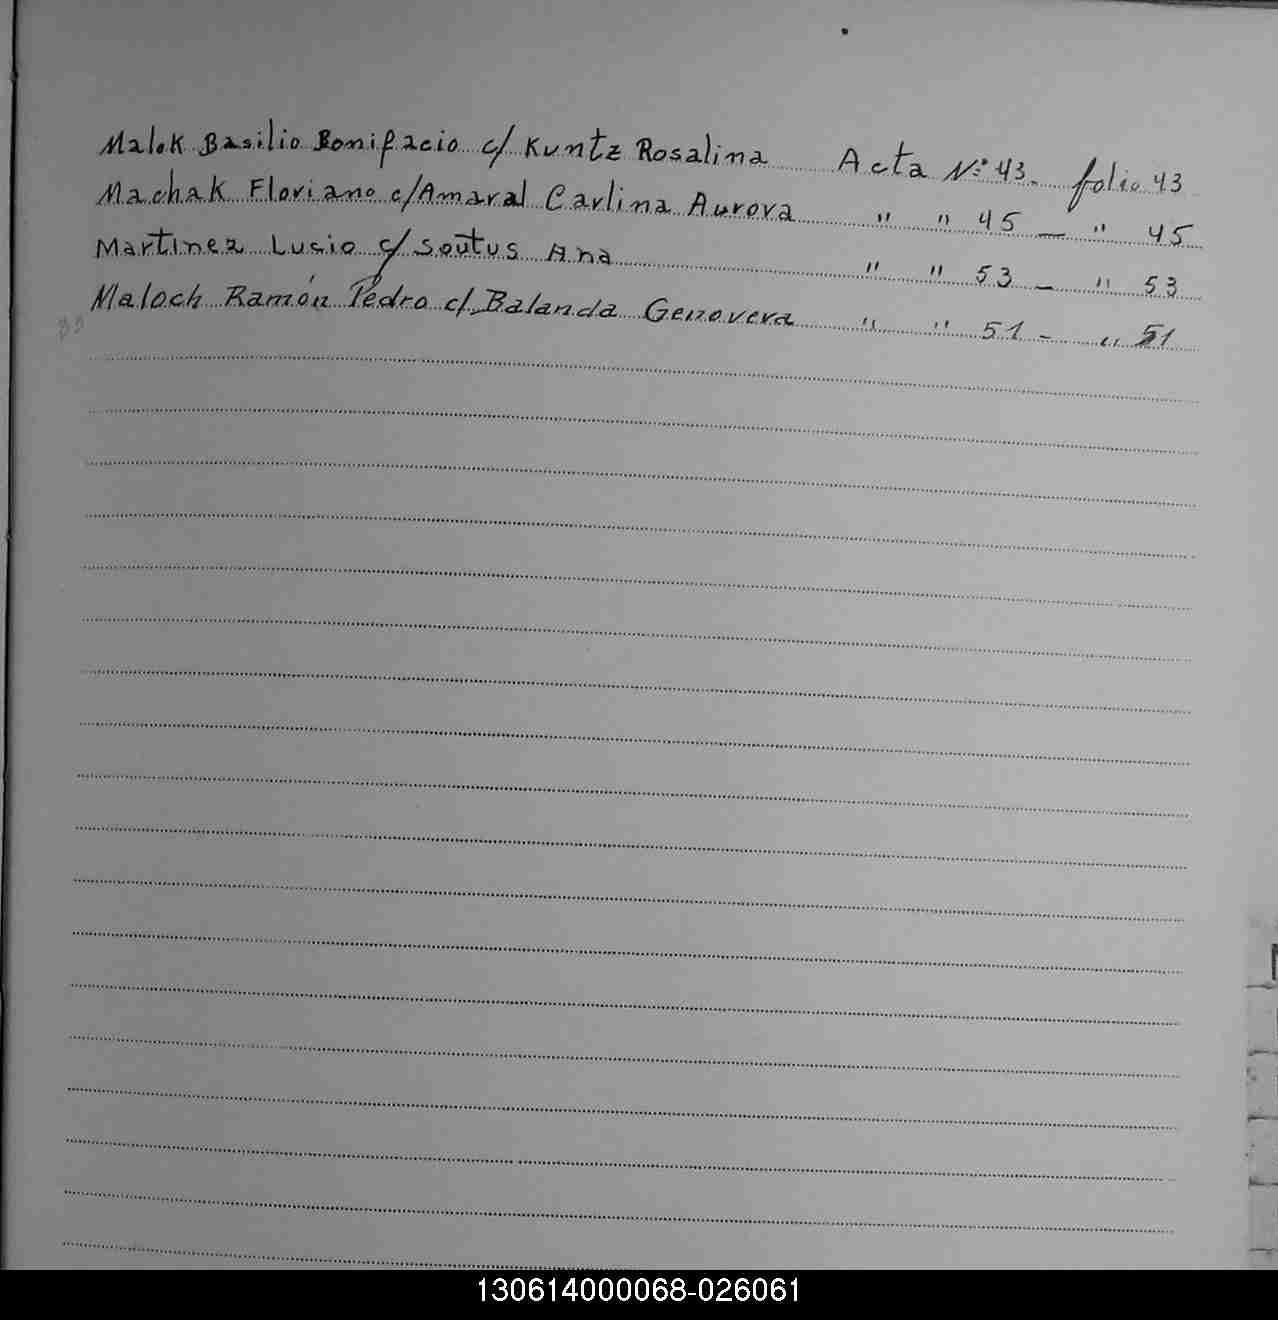 Malek Basilio Bonifacio c/ Kuntz Rosalina Acta Nº 43. folio 43
Machak Floriano c/ Amaral Carlina Aurora " " 45 — " 45
Martinez Lusio c/ Soutus Ana " " 53 — " 53
Maloch Ramón Pedro c/ Balanda Genovera " " 51 - " 51
130614000068-026061